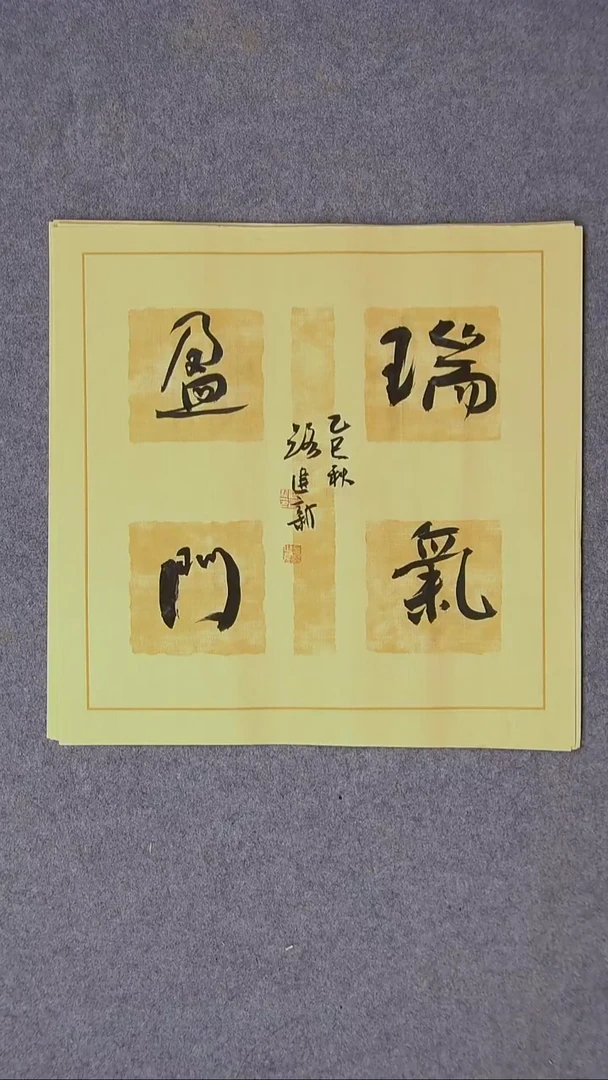 瑞氣
盈門
乙巳秋
路進新